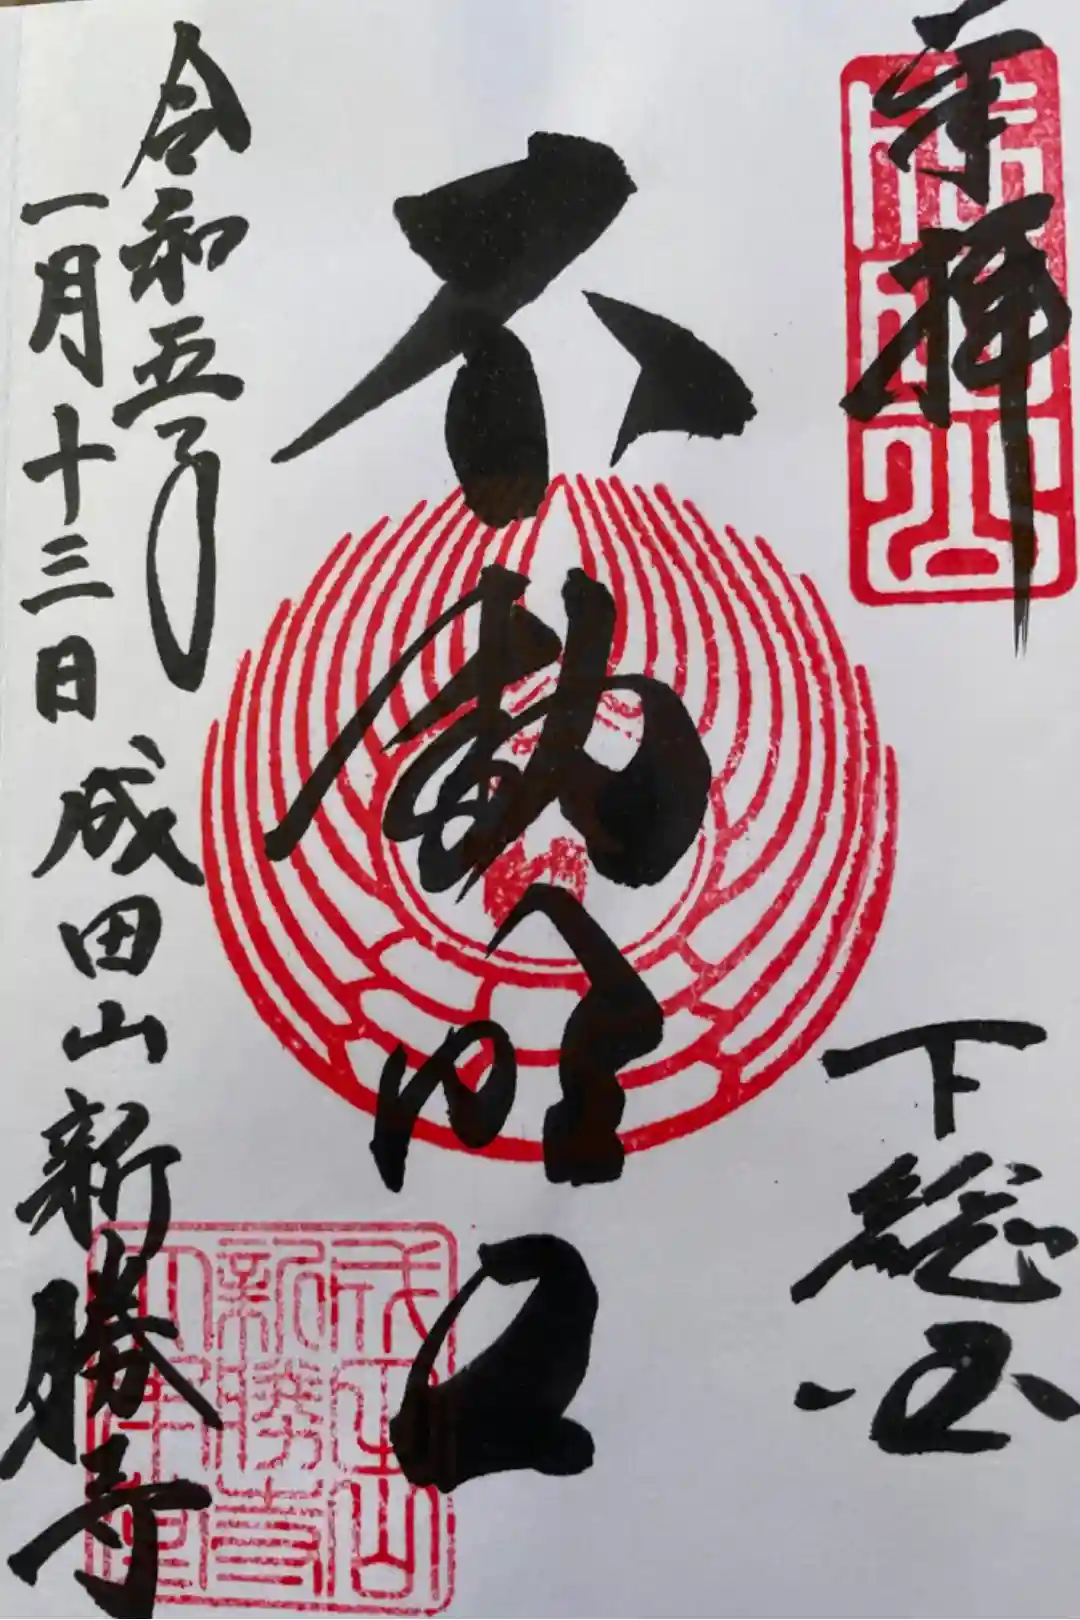 奉拝
下総国
不動明王
令和五年
一月十三日 成田山新勝寺
成田山
新勝寺